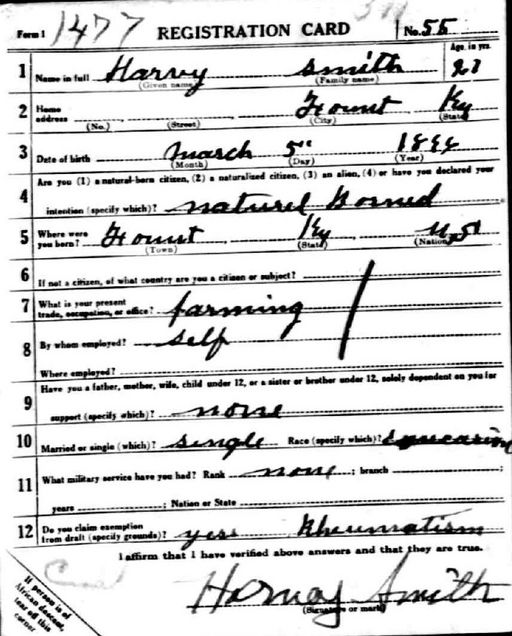 Form 1 1477 REGISTRATION CARD No. 55
Age, in yrs.
1 Name in full Harvy Smith 21
(Given name) (Family name)
2 Home address Fount Ky
(No.) (Street) (City) (State)
3 Date of birth March 5" 1896
(Month) (Day) (Year)
Are you (1) a natural-born citizen, (2) a naturalized citizen, (3) an alien, (4) or have you declared your
4 intention (specify which)? naturel Borned
5 Where were you born? Fount Ky U, S
(Town) (State) (Nation)
6 If not a citizen, of what country are you a citizen or subject?
7 What is your present trade, occupation, or office? farming
8 By whom employed? Self
Where employed?
Have you a father, mother, wife, child under 12, or a sister or brother under 12, solely dependent on you for
9 support (specify which)? none
10 Married or single (which)? single Race (specify which)?
11 What military service have you had? Rank none ; branch
years ; Nation or State
12 Do you claim exemption from draft (specify grounds)? yes Rheumatism
I affirm that I have verified above answers and that they are true.
Harvay Smith
(Signature or mark)
If person is of
African descent,
tear off this
corner